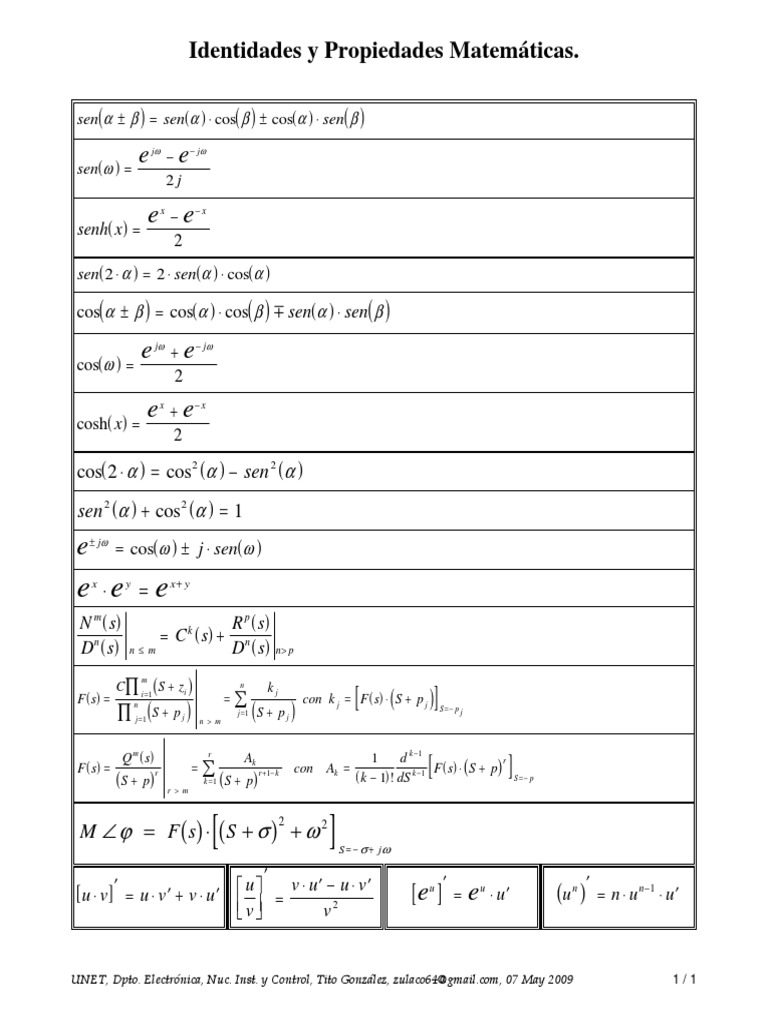 Identidades y Propiedades Matemáticas.
sen(α ± β) = sen(α)·cos(β) ± cos(α)·sen(β)
sen(ω) = (e^{jω} − e^{−jω}) / 2j
senh(x) = (e^{x} − e^{−x}) / 2
sen(2·α) = 2·sen(α)·cos(α)
cos(α ± β) = cos(α)·cos(β) ∓ sen(α)·sen(β)
cos(ω) = (e^{jω} + e^{−jω}) / 2
cosh(x) = (e^{x} + e^{−x}) / 2
cos(2·α) = cos²(α) − sen²(α)
sen²(α) + cos²(α) = 1
e^{±jω} = cos(ω) ± j·sen(ω)
e^{x}·e^{y} = e^{x+y}
N^{m}(s) / D^{n}(s) |_{n ≤ m} = C^{k}(s) + R^{p}(s) / D^{n}(s) |_{n>p}
F(s) = C∏_{i=1}^{m}(S + z_{i}) / ∏_{j=1}^{n}(S + p_{j}) |_{n > m} = ∑_{j=1}^{n} k_{j} / (S + p_{j}) con k_{j} = [F(s)·(S + p_{j})]_{S=−p_{j}}
F(s) = Q^{m}(s) / (S + p)^{r} |_{r > m} = ∑_{k=1}^{r} A_{k} / (S + p)^{r+1−k} con A_{k} = 1 / (k − 1)! d^{k−1} / dS^{k−1} [F(s)·(S + p)^{r}]_{S=−p}
M∠φ = F(s)·[(S + σ)² + ω²]_{S=−σ+jω}
[u·v]′ = u·v′ + v·u′
[u / v]′ = (v·u′ − u·v′) / v²
[e^{u}]′ = e^{u}·u′
(u^{n})′ = n·u^{n−1}·u′
UNET, Dpto. Electrónica, Nuc. Inst. y Control, Tito González, zulaco64@gmail.com, 07 May 2009 1 / 1